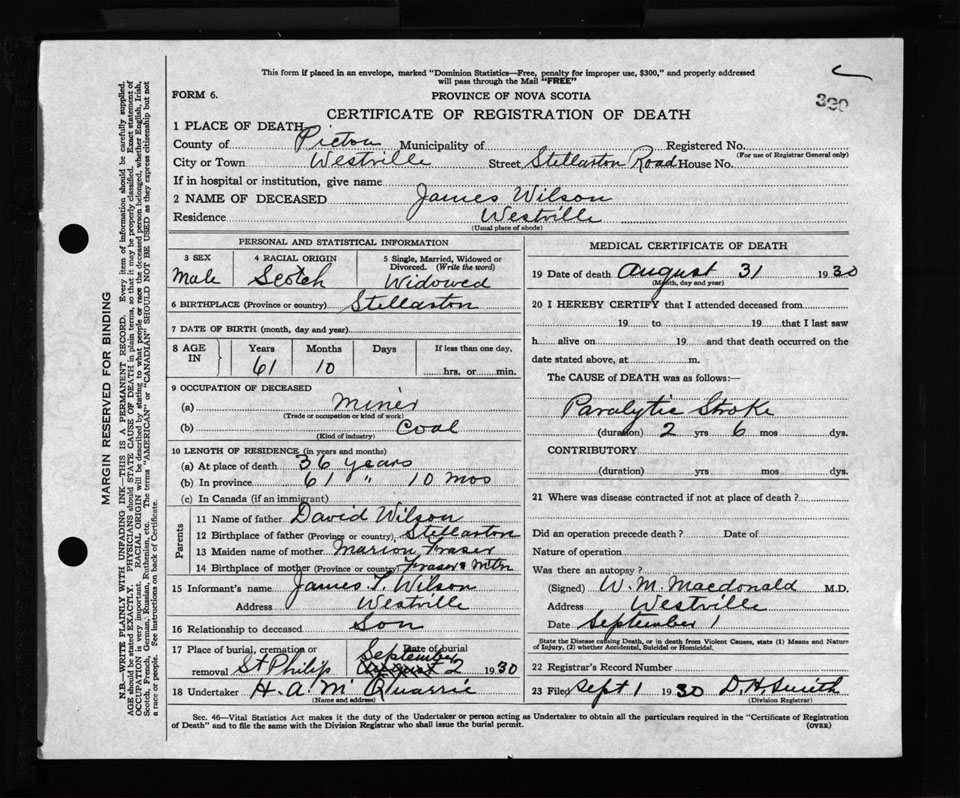 This form if placed in an envelope, marked "Dominion Statistics—Free, penalty for improper use, $300," and properly addressed
will pass through the Mail "FREE"
FORM 6.
PROVINCE OF NOVA SCOTIA
CERTIFICATE OF REGISTRATION OF DEATH
1 PLACE OF DEATH
County of Pictou Municipality of Registered No.
(For use of Registrar General only)
City or Town Westville Street Stellarton Road House No.
If in hospital or institution, give name
2 NAME OF DECEASED James Wilson
Residence Westville
(Usual place of abode)
PERSONAL AND STATISTICAL INFORMATION
3 SEX 4 RACIAL ORIGIN 5 Single, Married, Widowed or Divorced. (Write the word)
Male Scotch Widowed
6 BIRTHPLACE (Province or country) Stellarton
7 DATE OF BIRTH (month, day and year)
8 AGE IN Years Months Days If less than one day,
61 10 hrs. or min.
9 OCCUPATION OF DECEASED
(a) Miner
(Trade or occupation or kind of work)
(b) Coal
(Kind of industry)
10 LENGTH OF RESIDENCE (in years and months)
(a) At place of death 36 years
(b) In province 61 " 10 mos
(c) In Canada (if an immigrant)
Parents
11 Name of father David Wilson
12 Birthplace of father (Province or country) Stellarton
13 Maiden name of mother Marion Fraser
14 Birthplace of mother (Province or country) Fraser's Mtn
15 Informant's name James T. Wilson
Address Westville
16 Relationship to deceased Son
17 Place of burial, cremation or removal St Philip Date of burial September 2 1930
18 Undertaker H. A. McQuarrie
(Name and address)
MEDICAL CERTIFICATE OF DEATH
19 Date of death August 31 1930
(Month, day and year)
20 I HEREBY CERTIFY that I attended deceased from
19 to 19 that I last saw
h alive on 19 and that death occurred on the
date stated above, at m.
The CAUSE of DEATH was as follows:—
Paralytic Stroke
(duration) 2 yrs 6 mos dys.
CONTRIBUTORY
(duration) yrs mos dys.
21 Where was disease contracted if not at place of death ?
Did an operation precede death ? Date of
Nature of operation
Was there an autopsy ?
(Signed) W. M. Macdonald M.D.
Address Westville
Date September 1
State the Disease causing Death, or in death from Violent Causes, state (1) Means and Nature
of Injury, (2) whether Accidental, Suicidal or Homicidal.
22 Registrar's Record Number
23 Filed Sept 1 1930 D. H. Smith
(Division Registrar)
Sec. 46—Vital Statistics Act makes it the duty of the Undertaker or person acting as Undertaker to obtain all the particulars required in the "Certificate of Registration
of Death" and to file the same with the Division Registrar who shall issue the burial permit. (OVER)
MARGIN RESERVED FOR BINDING
N.B.—WRITE PLAINLY WITH UNFADING INK—THIS IS A PERMANENT RECORD. Every item of information should be carefully supplied.
AGE should be stated EXACTLY. PHYSICIANS should STATE CAUSE OF DEATH in plain terms, so that it may be properly classified. Exact statement of
OCCUPATION is very important. RACIAL ORIGIN will be described by stating to what people or race the deceased person belonged, whether English, Irish,
Scotch, French, German, Russian, Ruthenian, etc. The terms "AMERICAN" or "CANADIAN" SHOULD NOT BE USED as they express citizenship but not
a race or people. See instructions on back of Certificate.